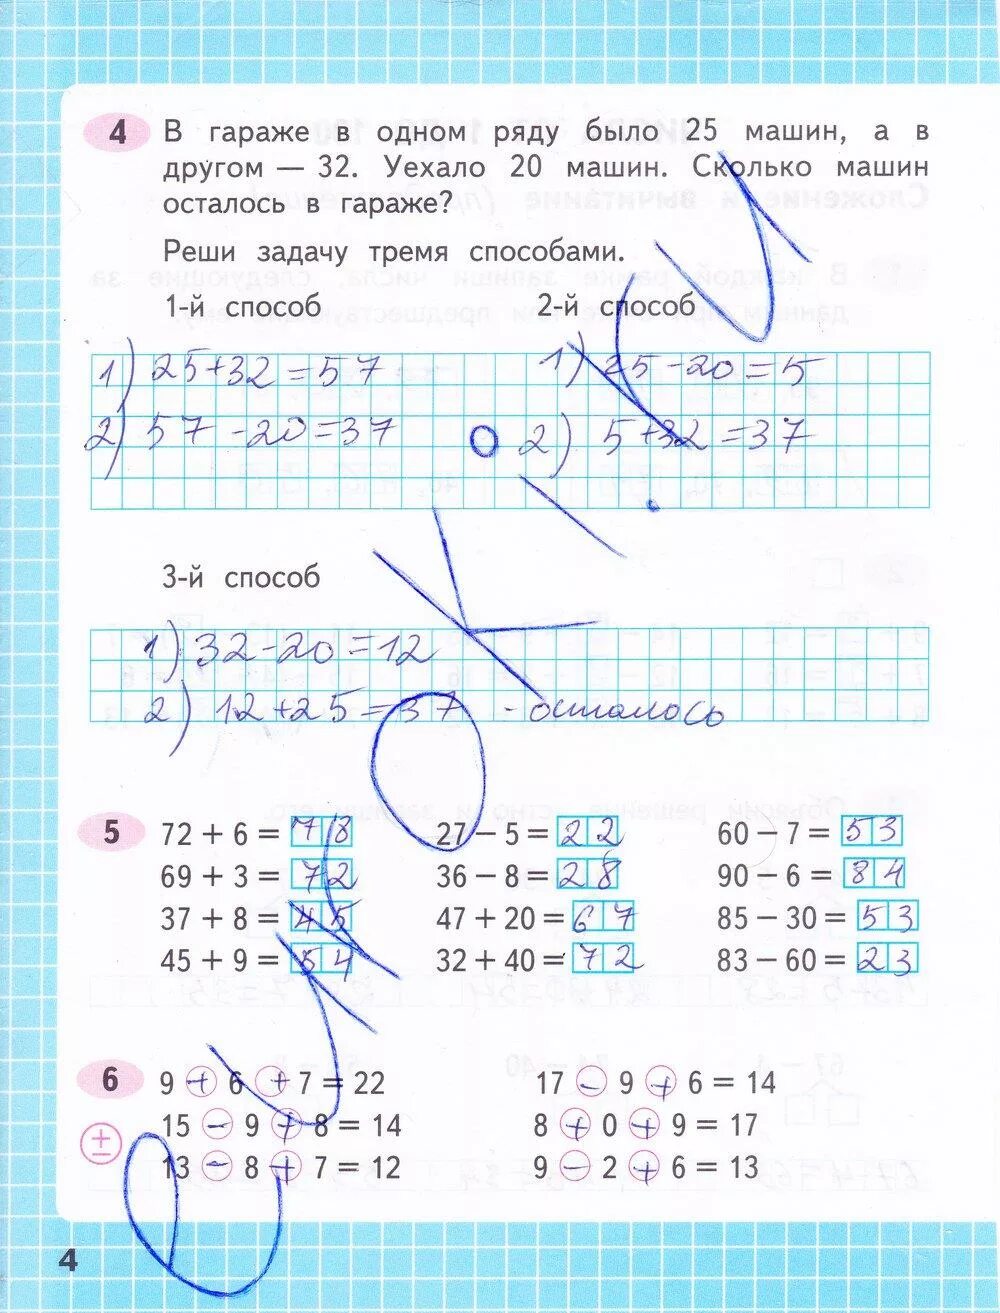 4 В гараже в одном ряду было 25 машин, а в
другом — 32. Уехало 20 машин. Сколько машин
осталось в гараже?
Реши задачу тремя способами.
1-й способ 2-й способ
1) 25+32=57 1) 25-20=5
2) 57-20=37 2) 5+32=37
3-й способ
1) 32-20=12
2) 12+25=37 - осталось
5 72 + 6 = 78 27 − 5 = 22 60 − 7 = 53
69 + 3 = 72 36 − 8 = 28 90 − 6 = 84
37 + 8 = 45 47 + 20 = 67 85 − 30 = 53
45 + 9 = 54 32 + 40 = 72 83 − 60 = 23
6 9 + 6 + 7 = 22 17 − 9 + 6 = 14
15 − 9 + 8 = 14 8 + 0 + 9 = 17
13 − 8 + 7 = 12 9 − 2 + 6 = 13
±
4